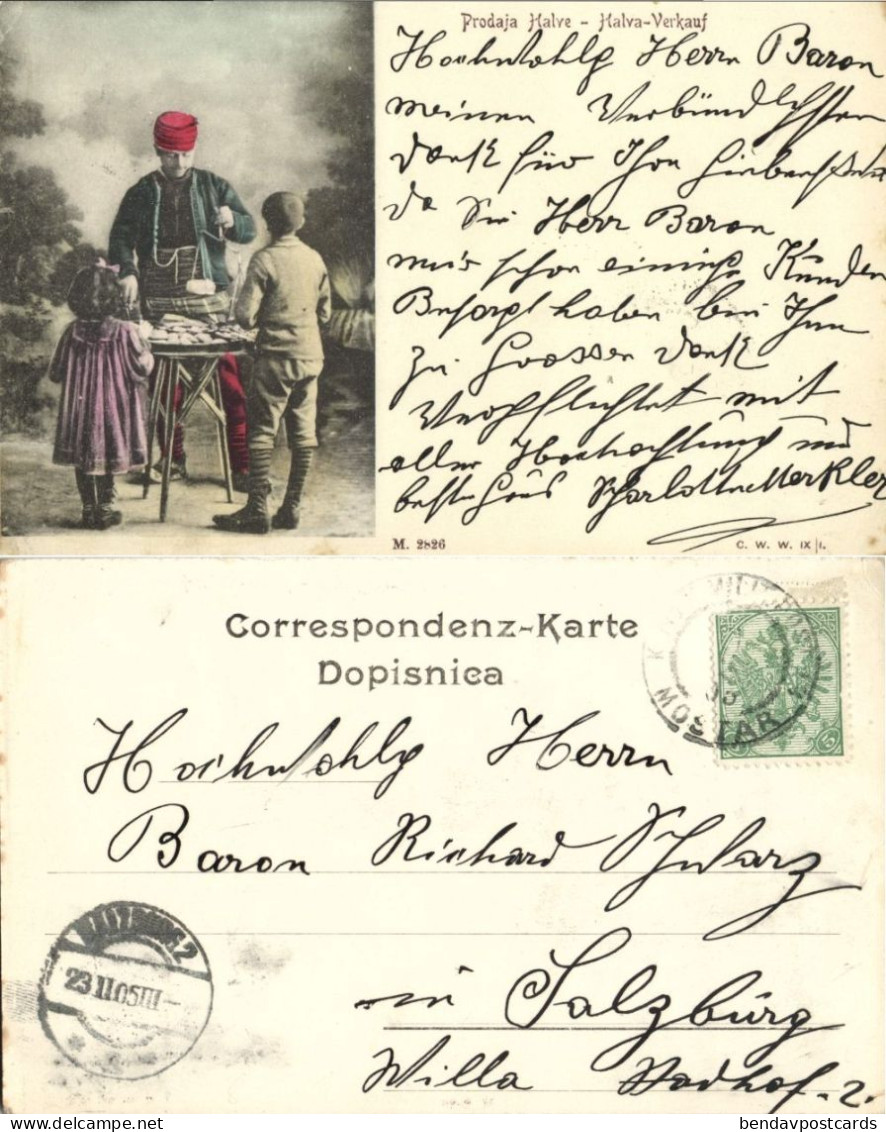 Prodaja Halve - Halva-Verkauf
Hochwohlg Herrn Baron
meinen Verbündlichsten
Dank für Ihre
da Sie Herr Baron
mir schon einige Kunden
Besorgt haben bin Ihnen
zu Grossen Dank
Verpflichtet mit
aller Hochachtung und
beste Grüs Scharlotta Merkler
M. 2826
C. W. W. IX|1.
Correspondenz-Karte
Dopisnica
MOSTAR
Hochwohlg Herrn
Baron Richard Schwarz
23 11 05 III
in Salzbürg
Willa
bendavpostcards